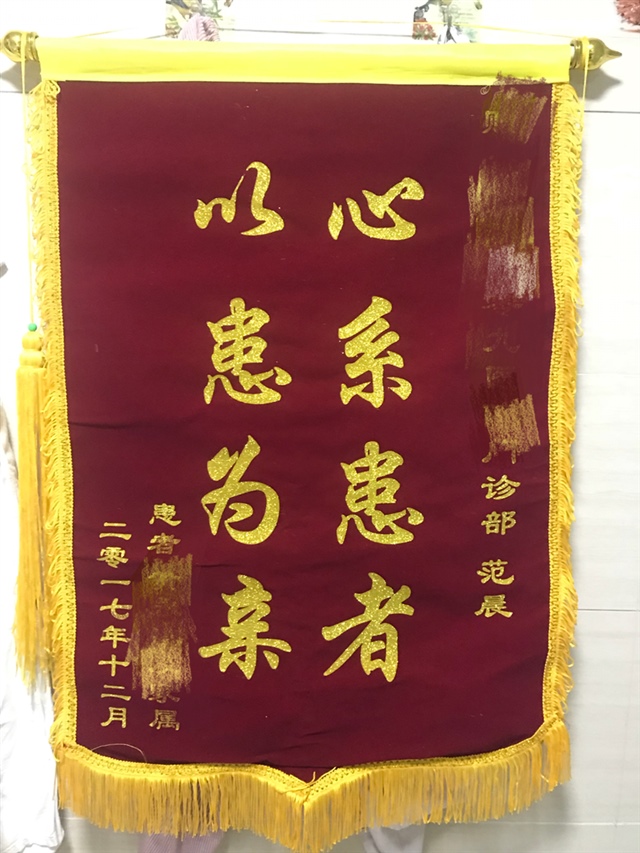 赠
诊部 范展
心系患者
以患为亲
患者
家属
二零一七年十二月